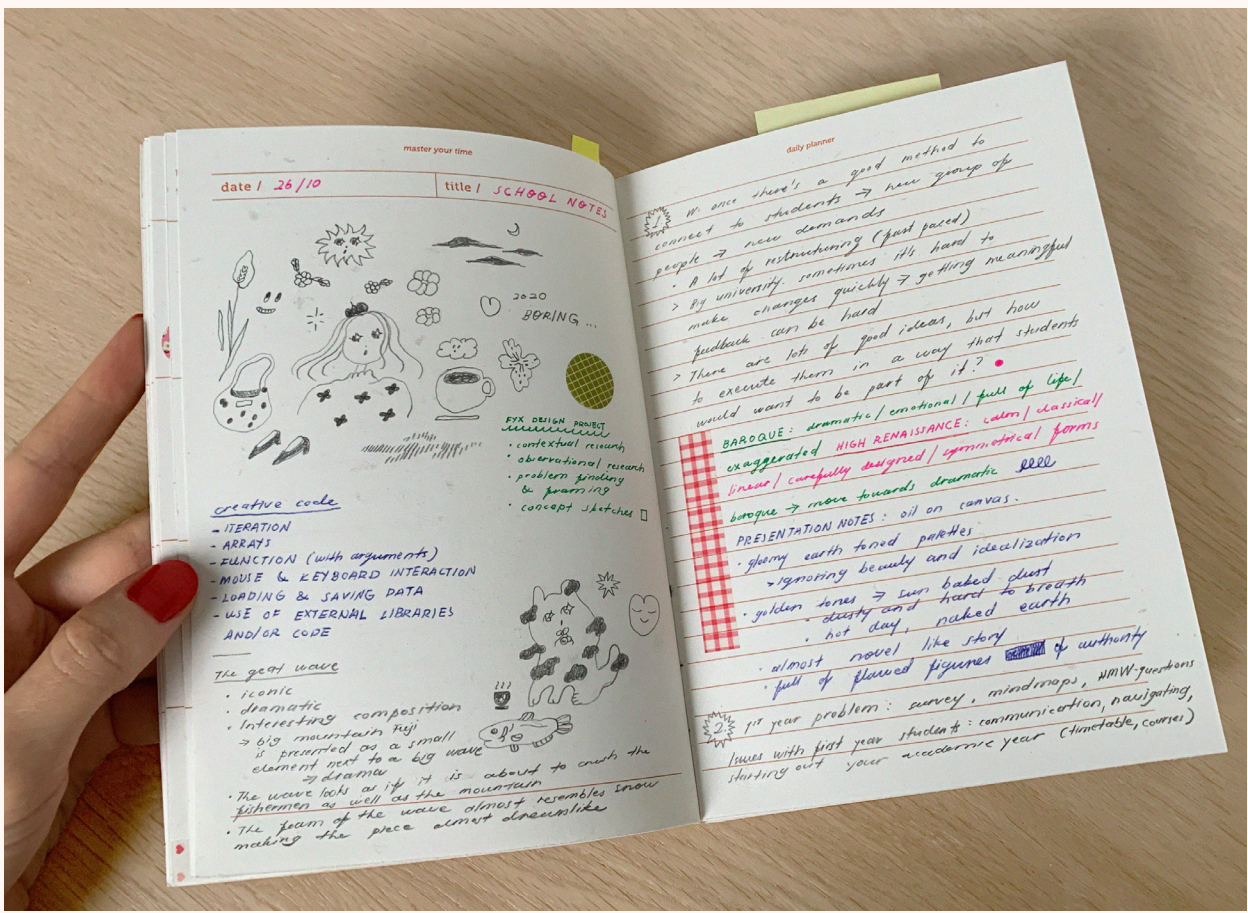 master your time
date / 26/10
title / SCHOOL NOTES
2020
BORING ...
FYX DESIGN PROJECT
• contextual research
• observational research
• problem finding
& framing
• concept sketches
creative code
- ITERATION
- ARRAYS
- FUNCTION (with arguments)
- MOUSE & KEYBOARD INTERACTION
- LOADING & SAVING DATA
- USE OF EXTERNAL LIBRARIES
AND/OR CODE
The geat wave
• iconic
• dramatic
• Interesting composition
→ big mountain Fuji
is presented as a small
element next to a big wave
→ drama
• The wave looks as if it is about to crush the
fishermen as well as the mountain
• The foam of the wave almost resembles snow
making the piece almost dreamlike
daily planner
1. once there's a good method to
connect to students → new group of
people → new demands
• A lot of restructuring (fast paced)
> Big university. sometimes it's hard to
make changes quickly → getting meaningful
feedback can be hard
> There are lots of good ideas, but how
to execute them in a way that students
would want to be part of it?
BAROQUE: dramatic / emotional / full of life /
exaggerated HIGH RENAISSANCE: calm / classical /
linear / carefully designed / symmetrical forms
baroque → move towards dramatic
PRESENTATION NOTES: oil on canvas.
• gloomy earth toned palettes
> ignoring beauty and idealization
• golden tones → sun baked dust
• dusty and hard to breath
• hot day, naked earth
• almost novel like story
• full of flawed figures of authority
2. 1st year problem: survey, mindmaps, HMW-questions
Issues with first year students: communication, navigating,
starting out your academic year (timetable, courses)